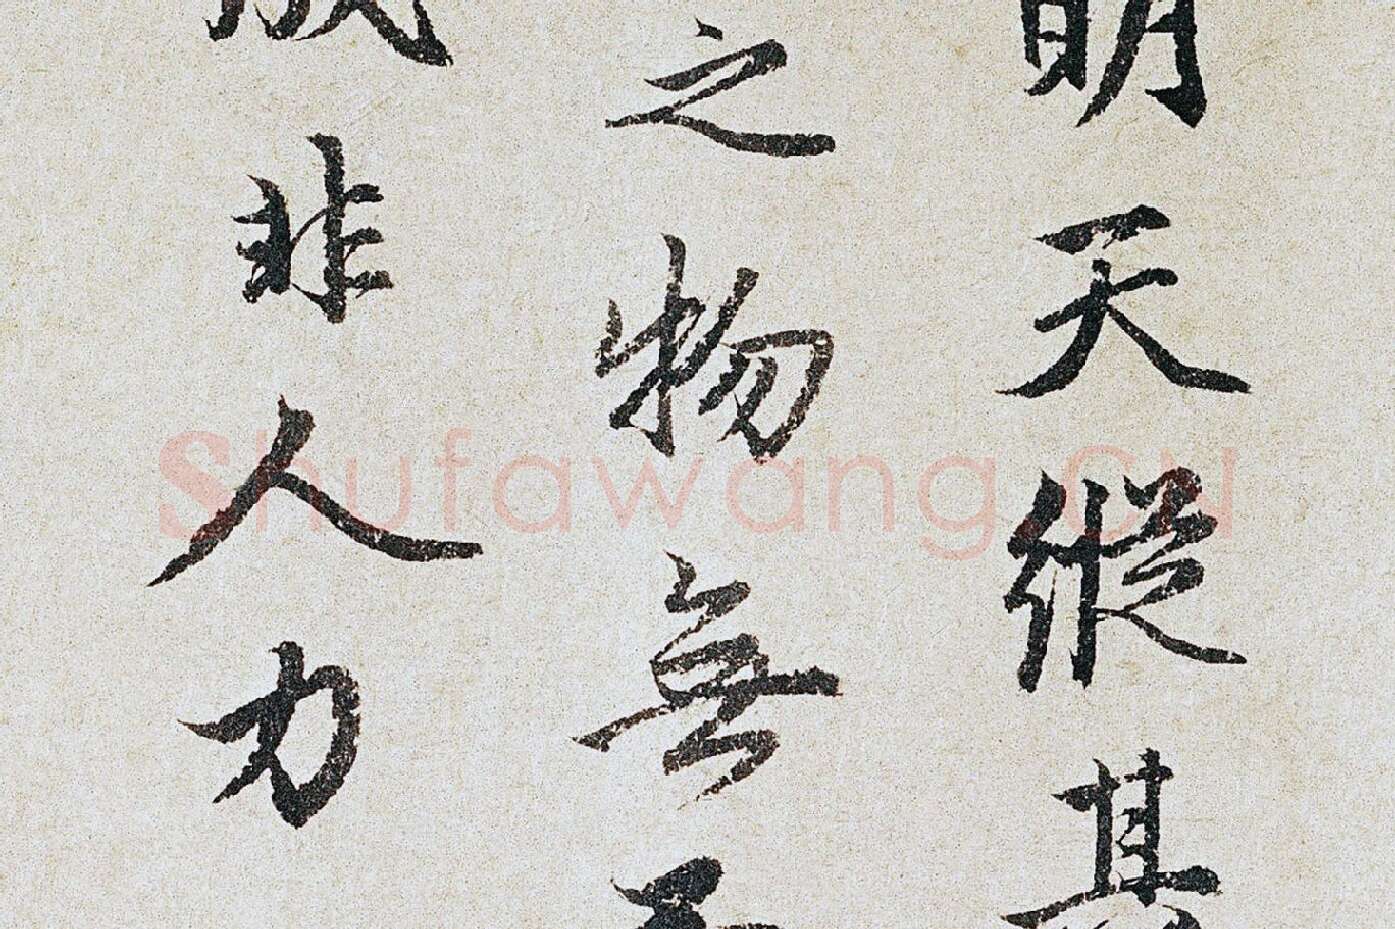 明天縱其
之物無不
成非人力
Shufawang.CN